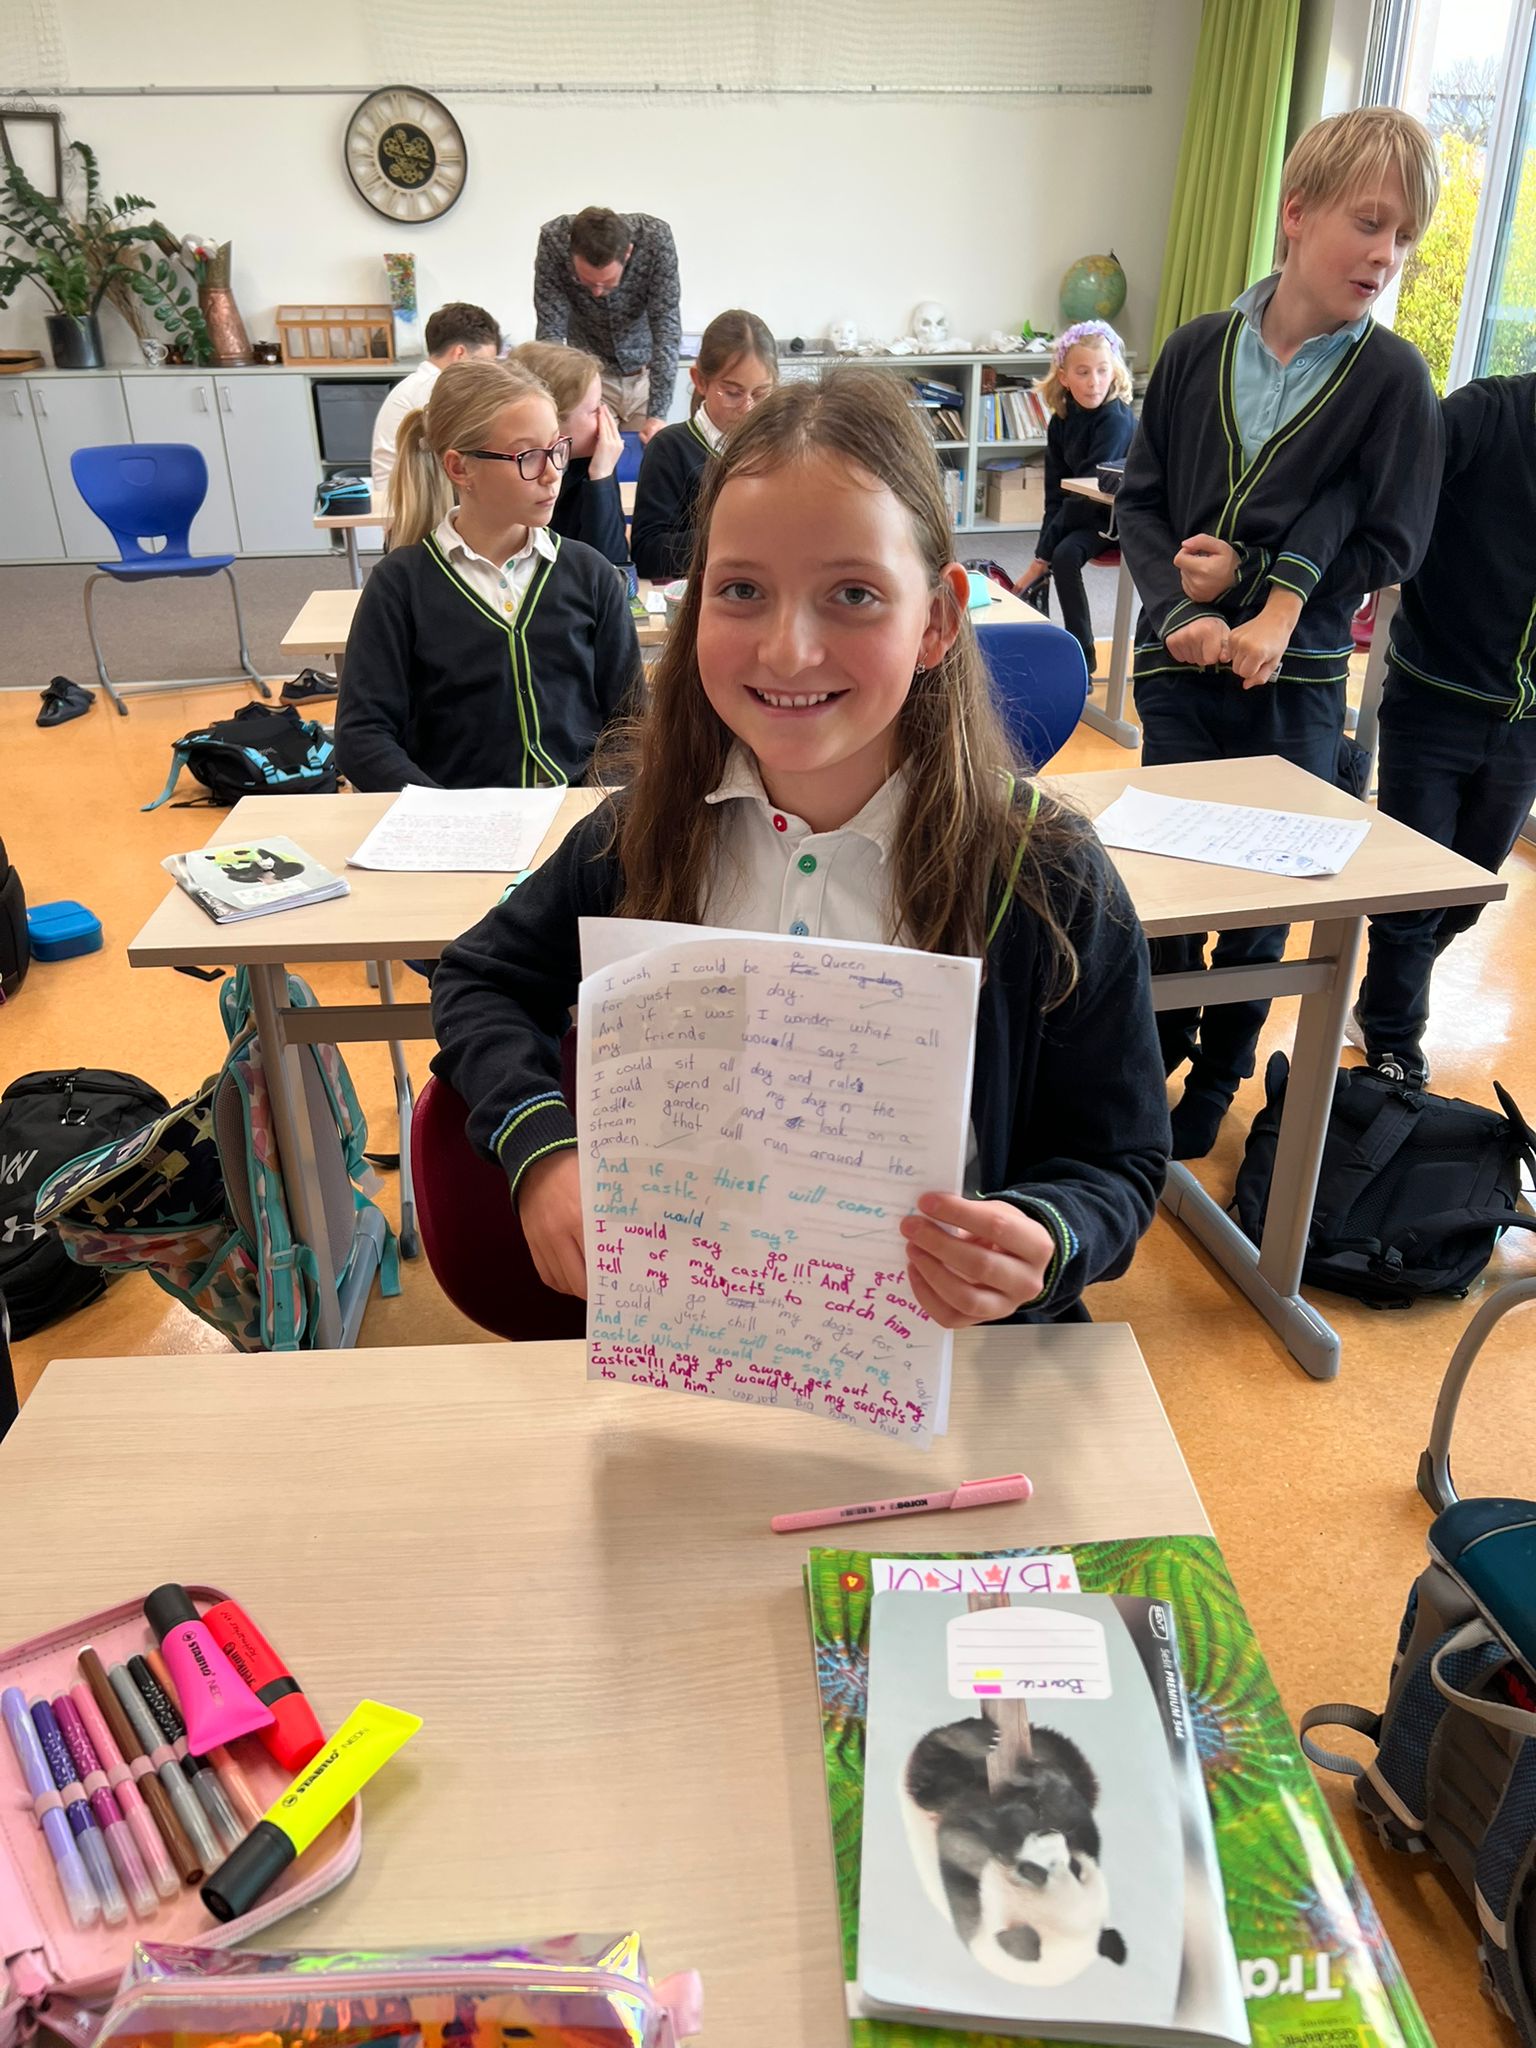 I wish I could be a Queen
for just one day.
And if I was, I wonder what all
my friends would say?
I could sit all day and rule's
I could spend all my day in the
castle garden and look on a
stream that will run around the
garden.
And if a thiesf will come
my castle,
what would I say?
I would say go away get
out of my castle!!! And I would
tell my subject's to catch him
I could go with my dog's for a walk
I could just chill in my bed
And if a thief will come to my
castle What would I say?
I would say go away get out fo my
castle!!! And I would tell my subject's
to catch him.
my very big garden.
kores
BARU
4
SEVT
Sešit PREMIUM 544
Baru
Tra
STABILO NEON
STABILO NEON
Pelikan